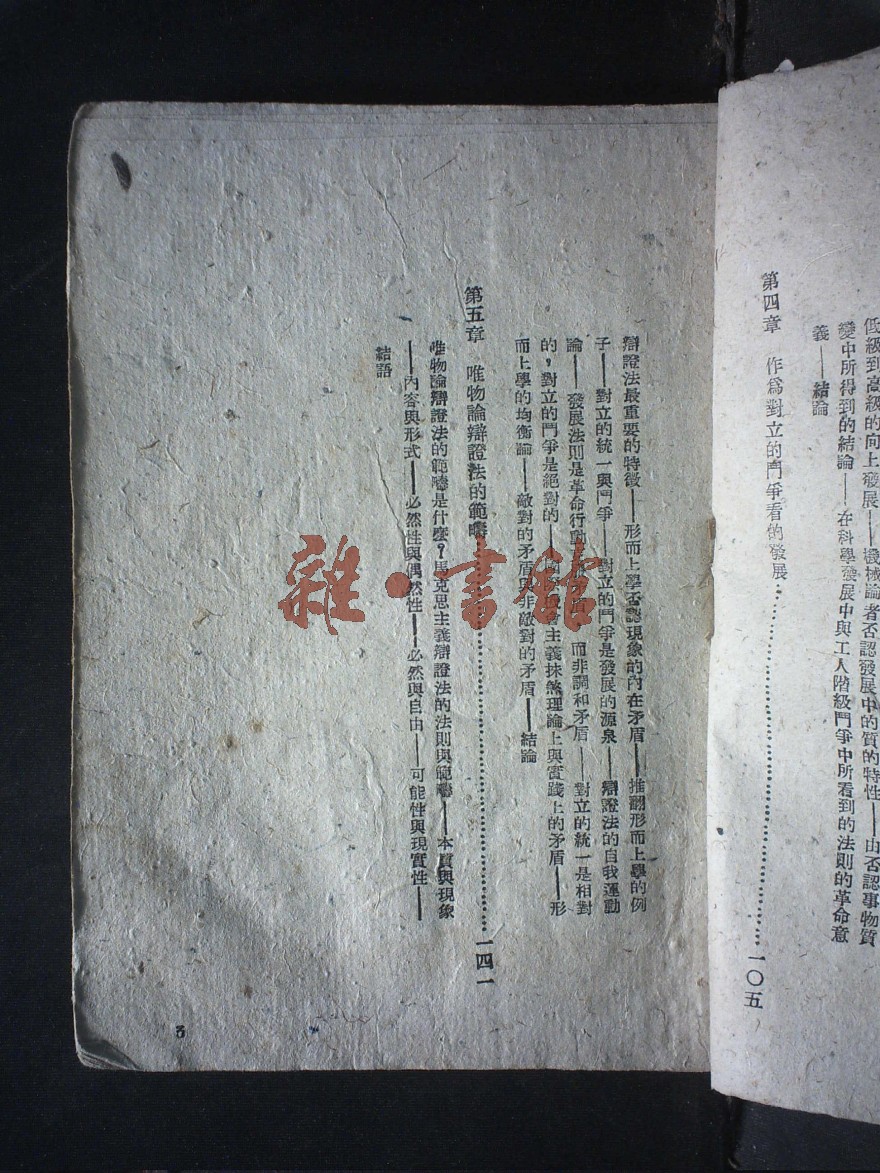 低級到高級的向上發展——機械論者否認發展中的質的特性——由否認事物質
變中所得到的結論——在科學發展中與工人階級鬥爭中所看到的法則的革命意
義——結論
第四章 作爲對立的鬥爭看的發展………………一〇五
辯證法最重要的特徵——形而上學否認現象的內在矛盾——推翻形而上學的例
子——對立的統一與鬥爭——對立的鬥爭是發展的源泉——辯證法的自我運動
論——發展法則是革命行動 而非調和矛盾——對立的統一是相對
的，對立的鬥爭是絕對的—— 主義抹煞理論上與實踐上的矛盾——形
而上學的均衡論——敵對的矛盾與非敵對的矛盾——結論
第五章 唯物論辯證法的範疇………………一四一
唯物論辯證法的範疇是什麽？馬克思主義辯證法的法則與範疇——本質與現象
——內容與形式——必然性與偶然性——必然與自由——可能性與現實性——
結語
3
雜·書館